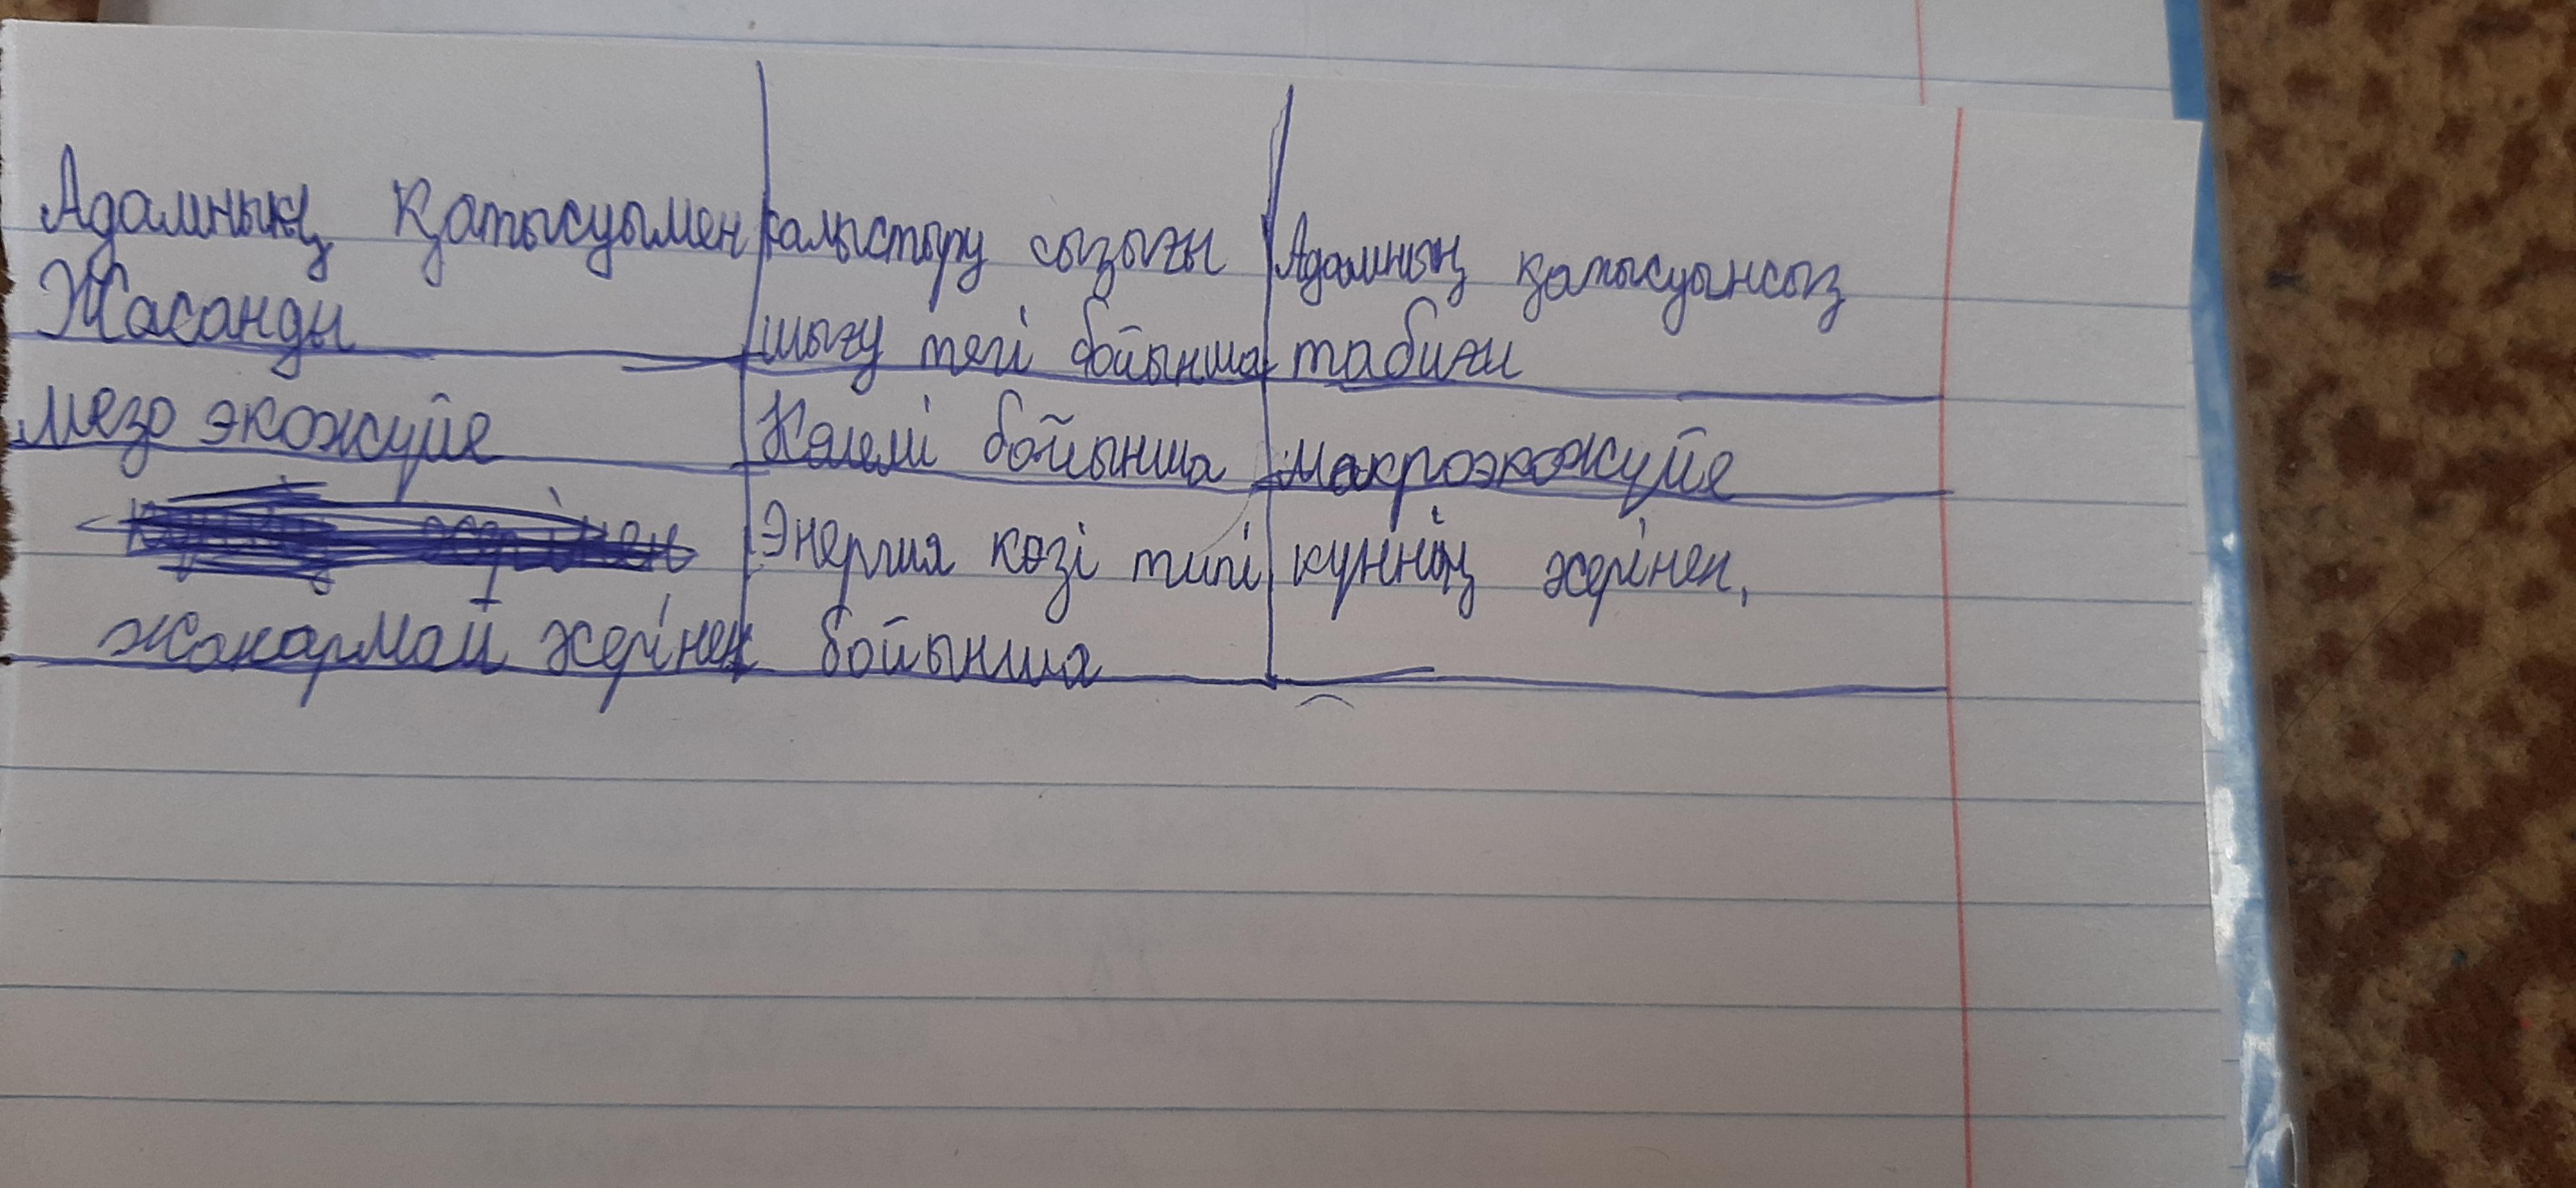 Адамның Қатысуымен салыстыру сызығы Адамның қатысуынсыз
Жасанды шығу тегі бойынша табиғи
мезо экожүйе Көлемі бойынша макроэкожүйе
Энергия көзі типі күннің жерінен,
жанармай жерінен бойынша